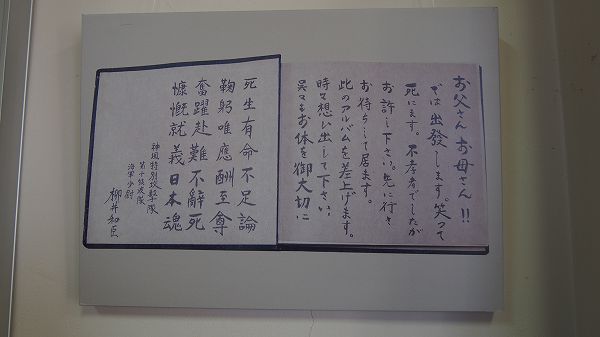 お父さんお母さん!!
では出發します。笑って
死にます。不孝者でしたが
お許し下さい。先に行き
お待ちして居ます。
此のアルバムを差上げます。
時々想い出して下さい
呉々もお体を御大切に
死生有命不足論
鞠躬唯應酬至尊
奮躍赴難不辭死
慷慨就義日本魂
神風特別攻撃隊
海軍少尉
柳井和臣